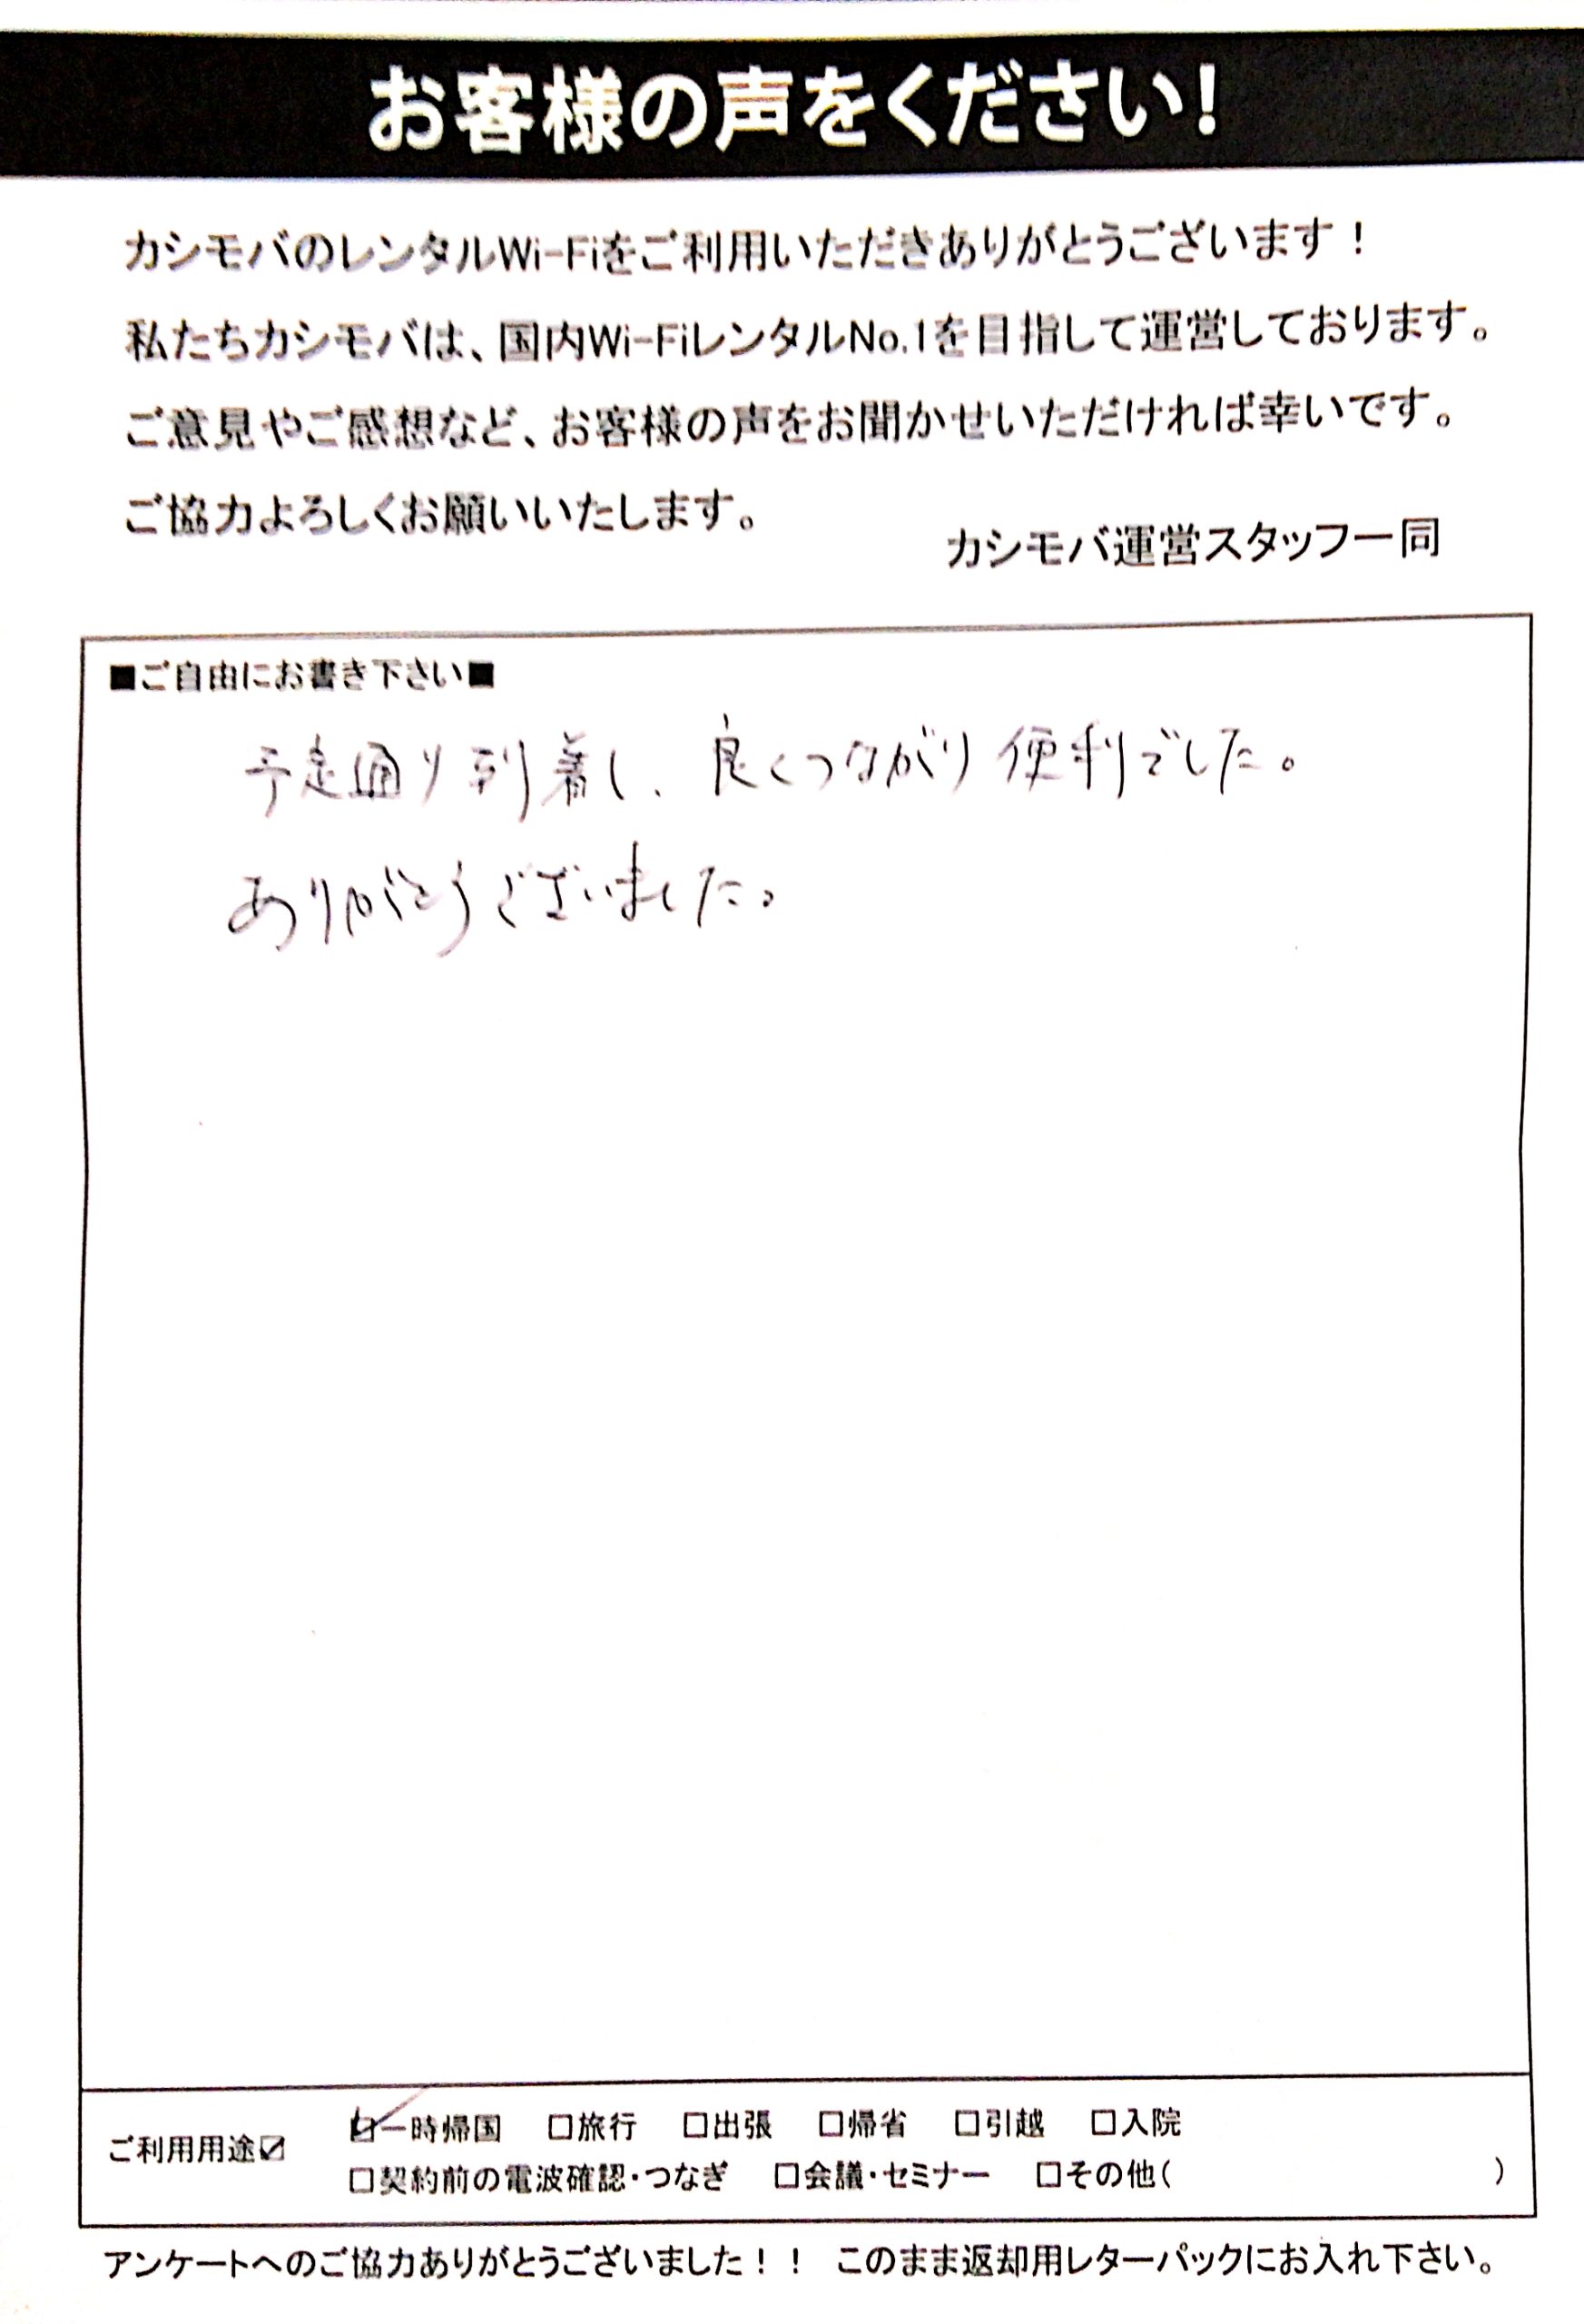 お客様の声をください!
カシモバのレンタルWi-Fiをご利用いただきありがとうございます！
私たちカシモバは、国内Wi-FiレンタルNo.1を目指して運営しております。
ご意見やご感想など、お客様の声をお聞かせいただければ幸いです。
ご協力よろしくお願いいたします。
カシモバ運営スタッフ一同
■ご自由にお書き下さい■
予定通り到着し、良くつながり便利でした。
ありがとうございました。
ご利用用途☑ ☑一時帰国 □旅行 □出張 □帰省 □引越 □入院
□契約前の電波確認・つなぎ □会議・セミナー □その他( )
アンケートへのご協力ありがとうございました！！ このまま返却用レターパックにお入れ下さい。